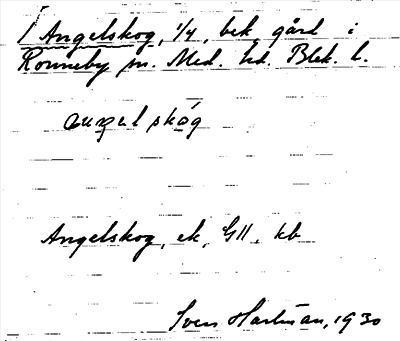 Angelskog, 1/4, bek. gård i
Ronneby sn. Med. hd. Blek. l.
aŋəl skóg
Angelskog, ek, GII, kb
Sven Hartman, 1930